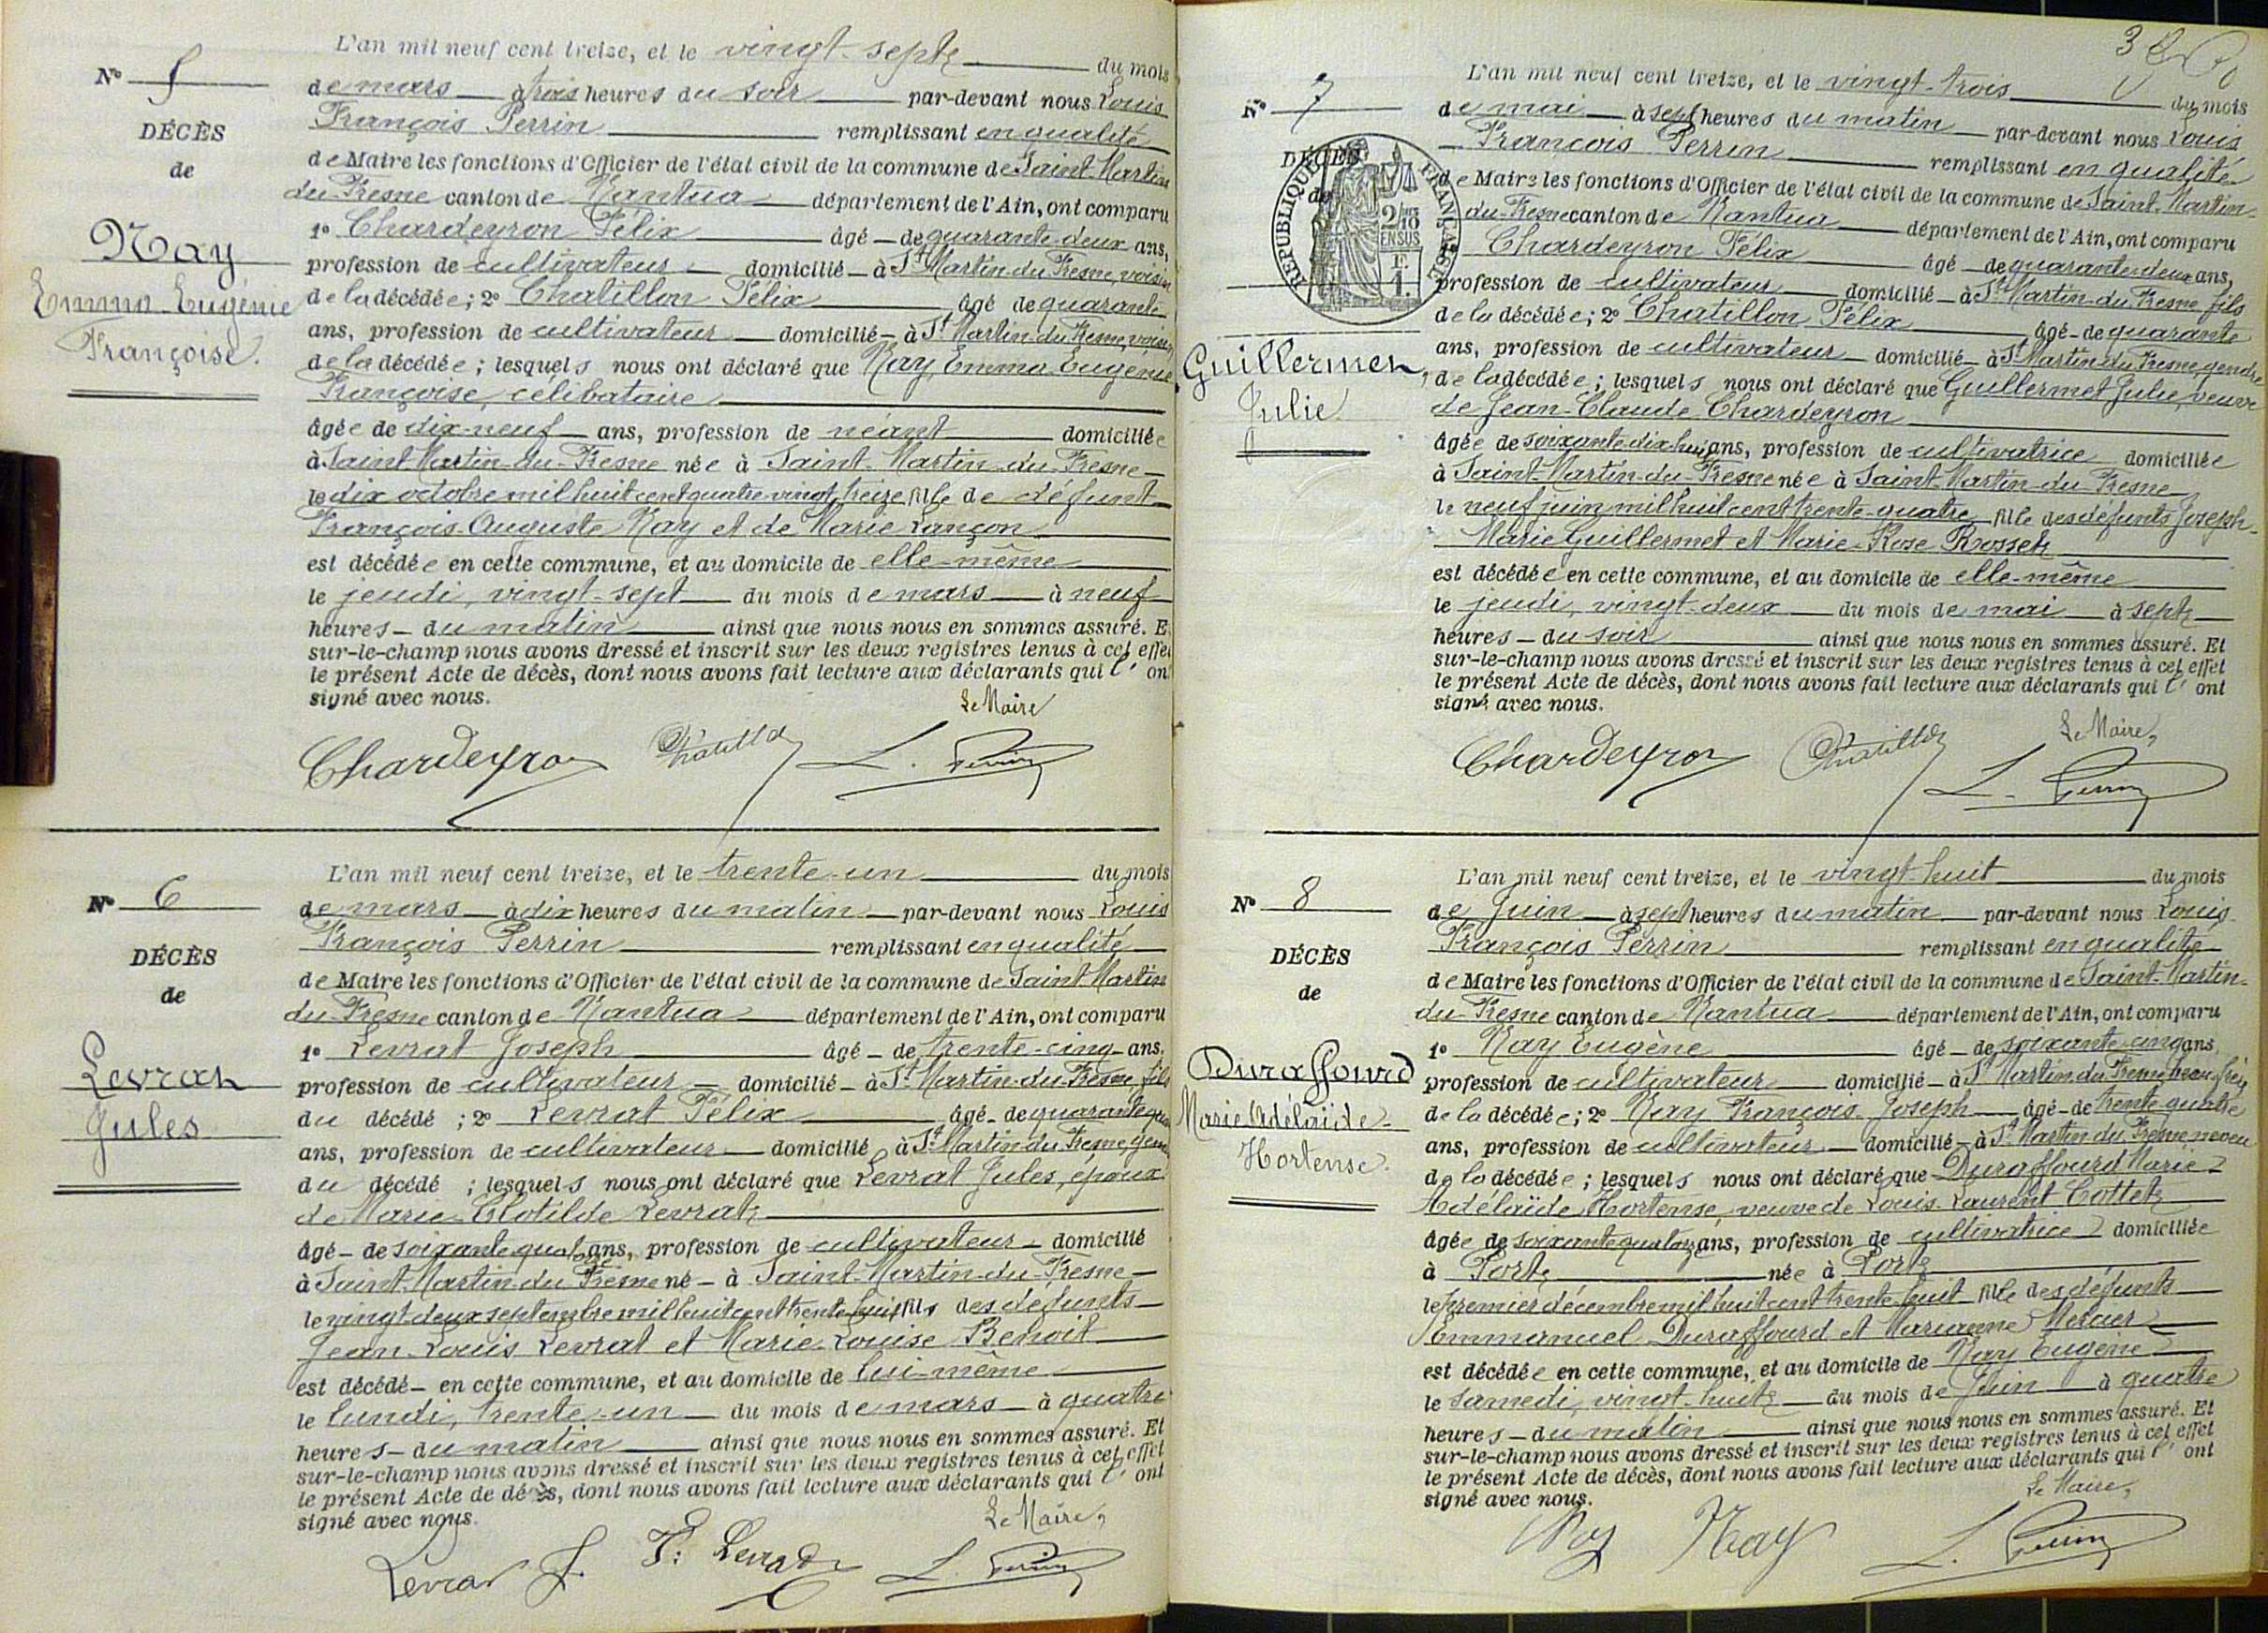 L'an mil neuf cent treize, et le vingt-sept du mois
N° 5
de mars à trois heures du soir par-devant nous Louis
François Perrin remplissant en qualité
DÉCÈS
de Maire les fonctions d'Officier de l'état civil de la commune de Saint-Martin
de
du-Fresne canton de Nantua département de l'Ain, ont comparu
1° Chardeyron Félix âgé de quarante-deux ans,
Nay
profession de cultivateur domicilié à St Martin-du-Fresne, voisin
Emma-Eugénie
de la décédée; 2° Chatillon Félix âgé de quarante
ans, profession de cultivateur domicilié à St Martin-du-Fresne, voisin
Françoise.
de la décédée; lesquels nous ont déclaré que Nay, Emma-Eugénie
Françoise, célibataire
âgée de dix-neuf ans, profession de néant domiciliée
à Saint-Martin-du-Fresne née à Saint-Martin-du-Fresne
le dix octobre mil huit cent quatre-vingt-treize, fille de défunt
François-Auguste Nay et de Marie Lançon
est décédée en cette commune, et au domicile de elle-même
le jeudi, vingt-sept du mois de mars à neuf
heures du matin ainsi que nous nous en sommes assuré. E
sur-le-champ nous avons dressé et inscrit sur les deux registres tenus à cet effet
le présent Acte de décès, dont nous avons fait lecture aux déclarants qui l' on
signé avec nous.
Le Maire
Chardeyron Chatillon L. Perrin
L'an mil neuf cent treize, et le trente-un du mois
N° 6
de mars à dix heures du matin par-devant nous Louis
François Perrin remplissant en qualité
DÉCÈS
de Maire les fonctions d'Officier de l'état civil de la commune de Saint-Martin
de
du-Fresne canton de Nantua département de l'Ain, ont comparu
1° Levrat Joseph âgé de trente-cinq ans,
Levrat
profession de cultivateur domicilié à St Martin-du-Fresne, fils
Jules
du décédé; 2° Levrat Félix âgé de quarante
ans, profession de cultivateur domicilié à St Martin-du-Fresne
du décédé; lesquels nous ont déclaré que Levrat Jules, époux
de Marie-Clotilde Levrat
âgé de soixante quatorze ans, profession de cultivateur domicilié
à Saint-Martin-du-Fresne né à Saint-Martin-du-Fresne
le vingt-deux septembre mil huit cent trente-huit fils des défunts
Jean-Louis Levrat et Marie-Louise Benoit
est décédé en cette commune, et au domicile de lui-même
le lundi, trente-un du mois de mars à quatre
heures du matin ainsi que nous nous en sommes assuré. Et
sur-le-champ nous avons dressé et inscrit sur les deux registres tenus à cet effet
le présent Acte de décès, dont nous avons fait lecture aux déclarants qui l' ont
signé avec nous.
Le Maire,
Levrat J. F. Levrat L. Perrin
3
L'an mil neuf cent treize, et le vingt-trois du mois
N° 7
de mai à sept heures du matin par-devant nous Louis
François Perrin remplissant en qualité
DÉCÈS
de
RÉPUBLIQUE FRANÇAISE
2/10 EN SUS
de Maire les fonctions d'Officier de l'état civil de la commune de Saint-Martin-
du-Fresne canton de Nantua département de l'Ain, ont comparu
Chardeyron Félix âgé de quarante-deux ans,
profession de cultivateur domicilié à St Martin-du-Fresne, fils
de la décédée; 2° Chatillon Félix âgé de quarante
ans, profession de cultivateur domicilié à St Martin-du-Fresne, gendre
Guillermet
de la décédée; lesquels nous ont déclaré que Guillermet Julie, veuve
Julie
de Jean-Claude Chardeyron
âgée de soixante-dix-huit ans, profession de cultivatrice domiciliée
à Saint-Martin-du-Fresne née à Saint-Martin-du-Fresne
le neuf juin mil huit cent trente-quatre fille des défunts Joseph-
Marie Guillermet et Marie-Rose Rosset
est décédée en cette commune, et au domicile de elle-même
le jeudi, vingt-deux du mois de mai à sept
heures du soir ainsi que nous nous en sommes assuré. Et
sur-le-champ nous avons dressé et inscrit sur les deux registres tenus à cet effet
le présent Acte de décès, dont nous avons fait lecture aux déclarants qui l' ont
signé avec nous.
Le Maire,
Chardeyron Chatillon L. Perrin
L'an mil neuf cent treize, et le vingt-huit du mois
N° 8
de Juin à sept heures du matin par-devant nous Louis
François Perrin remplissant en qualité
DÉCÈS
de Maire les fonctions d'Officier de l'état civil de la commune de Saint-Martin-
de
du-Fresne canton de Nantua département de l'Ain, ont comparu
1° Nay Eugène âgé de soixante-cinq ans,
Duraffourd
profession de cultivateur domicilié à St Martin-du-Fresne, beau-frère
Marie Adélaïde-
de la décédée; 2° Nay François-Joseph âgé de trente-quatre
ans, profession de cultivateur domicilié à St Martin-du-Fresne neveu
Hortense.
de la décédée; lesquels nous ont déclaré que Duraffourd Marie-
Adélaïde Hortense, veuve de Louis-Laurent Cottet
âgée de soixante quatorze ans, profession de cultivatrice domiciliée
à Port née à Port
le premier décembre mil huit cent trente-huit fille des défunts
Emmanuel Duraffourd et Marianne Mercier
est décédée en cette commune, et au domicile de Nay Eugène
le samedi, vingt-huit du mois de Juin à quatre
heures du matin ainsi que nous nous en sommes assuré. Et
sur-le-champ nous avons dressé et inscrit sur les deux registres tenus à cet effet
le présent Acte de décès, dont nous avons fait lecture aux déclarants qui l' ont
signé avec nous.
Le Maire,
Nay Nay L. Perrin